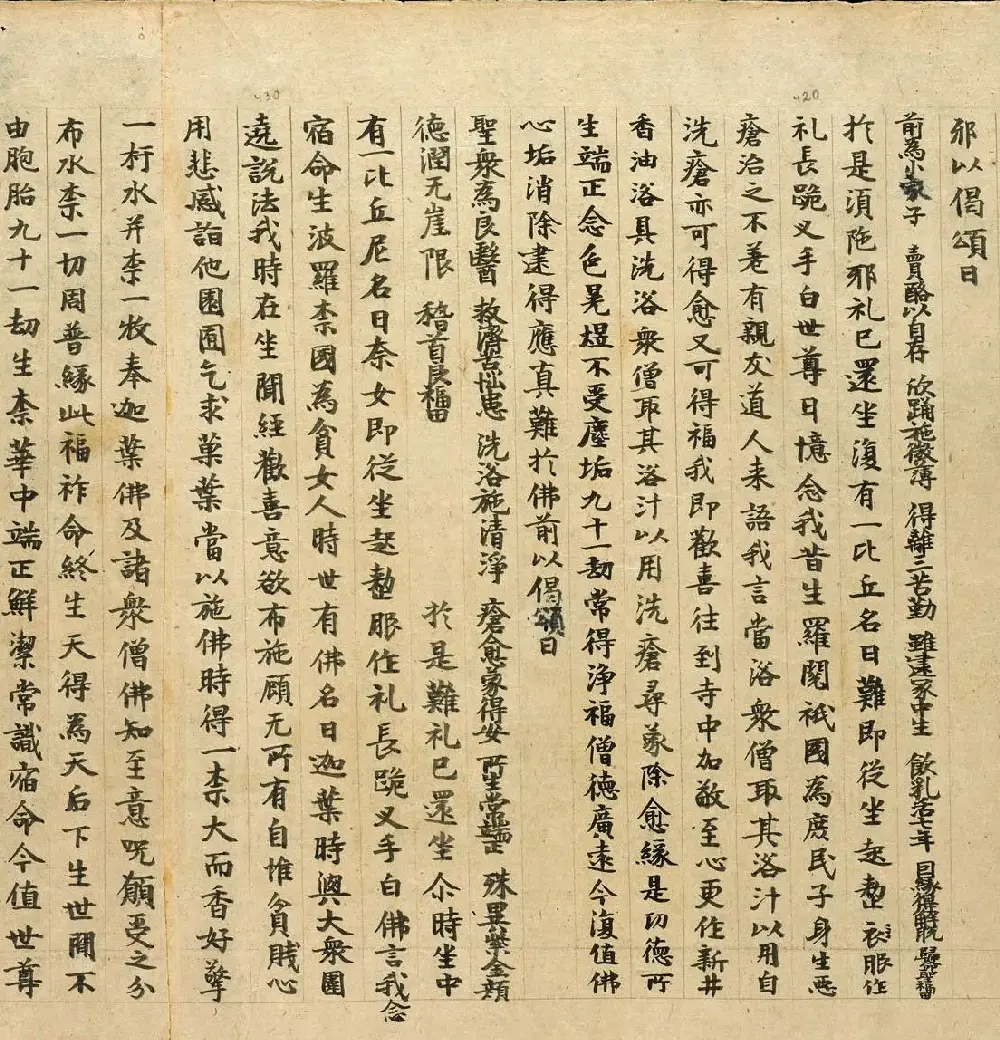 耶以偈頌曰
前為小家子 賣酪以自存 欣踊施微薄 得離三苦勤 雖墮冢中生 飲乳活七年 因緣得解脫 歸命福田
於是須陁耶礼已還坐復有一比丘名曰難即從坐起勑衣服作
礼長跪叉手白世尊曰憶念我昔生羅閱祇國為庶民子身生惡
瘡治之不差有親友道人来語我言當浴衆僧取其浴汁以用自
洗瘡亦可得愈又可得福我即歡喜往到寺中加敬至心更作新井
香油浴具洗浴衆僧取其浴汁以用洗瘡尋蒙除愈緣是功德所
生端正念色晃煜不受塵垢九十一劫常得淨福僧德廣遠今復值佛
心垢消除逮得應真難於佛前以偈頌曰
聖衆為良醫 救濟苦惱患 洗浴施清淨 瘡愈蒙得安 所生常端正 殊異紫金顏
德潤无崖限 稽首良福田 於是難礼已還坐尒時坐中
有一比丘尼名曰奈女即從坐起勑服作礼長跪叉手白佛言我念
宿命生波羅柰國為貧女人時世有佛名曰迦葉時與大衆圍
遶說法我時在坐聞經歡喜意欲布施顧无所有自惟貧賤心
用悲感詣他園囿乞求菓葉當以施佛時得一柰大而香好擎
一杅水并柰一牧奉迦葉佛及諸衆僧佛知至意呪願受之分
布水柰一切周普緣此福祚命終生天得為天后下生世間不
由胞胎九十一劫生柰華中端正鮮潔常識宿命今值世尊